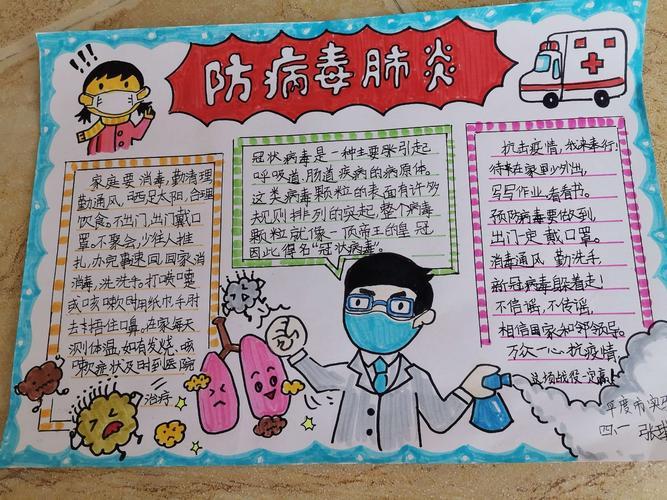 防病毒肺炎
!!!
家庭要消毒,勤清理
勤通风,晒足太阳,合理
饮食。不出门,出门戴口
罩。不聚会,少往人堆
扎,办完事速回,回家消
消毒,洗洗手。打喷嚏
或咳嗽时用纸巾手肘
去捂住口鼻。在家每天
测体温,如有发烧、咳
嗽症状及时到医院
治疗
冠状病毒是一种主要引起
呼吸道、肠道疾病的病原体。
这类病毒颗粒的表面有许多
规则排列的突起,整个病毒
颗粒就像一顶帝王的皇冠
因此得名"冠状病毒"。
抗击疫情,我来奉行!
待在家里少外出,
写写作业,看看书。
预防病毒要做到,
出门一定戴口罩。
消毒通风勤洗手,
新冠病毒躲着走!
不信谣,不传谣,
相信国家和领导。
万众一心抗疫情,
这场战役一定赢!
平度市实
四、一 张